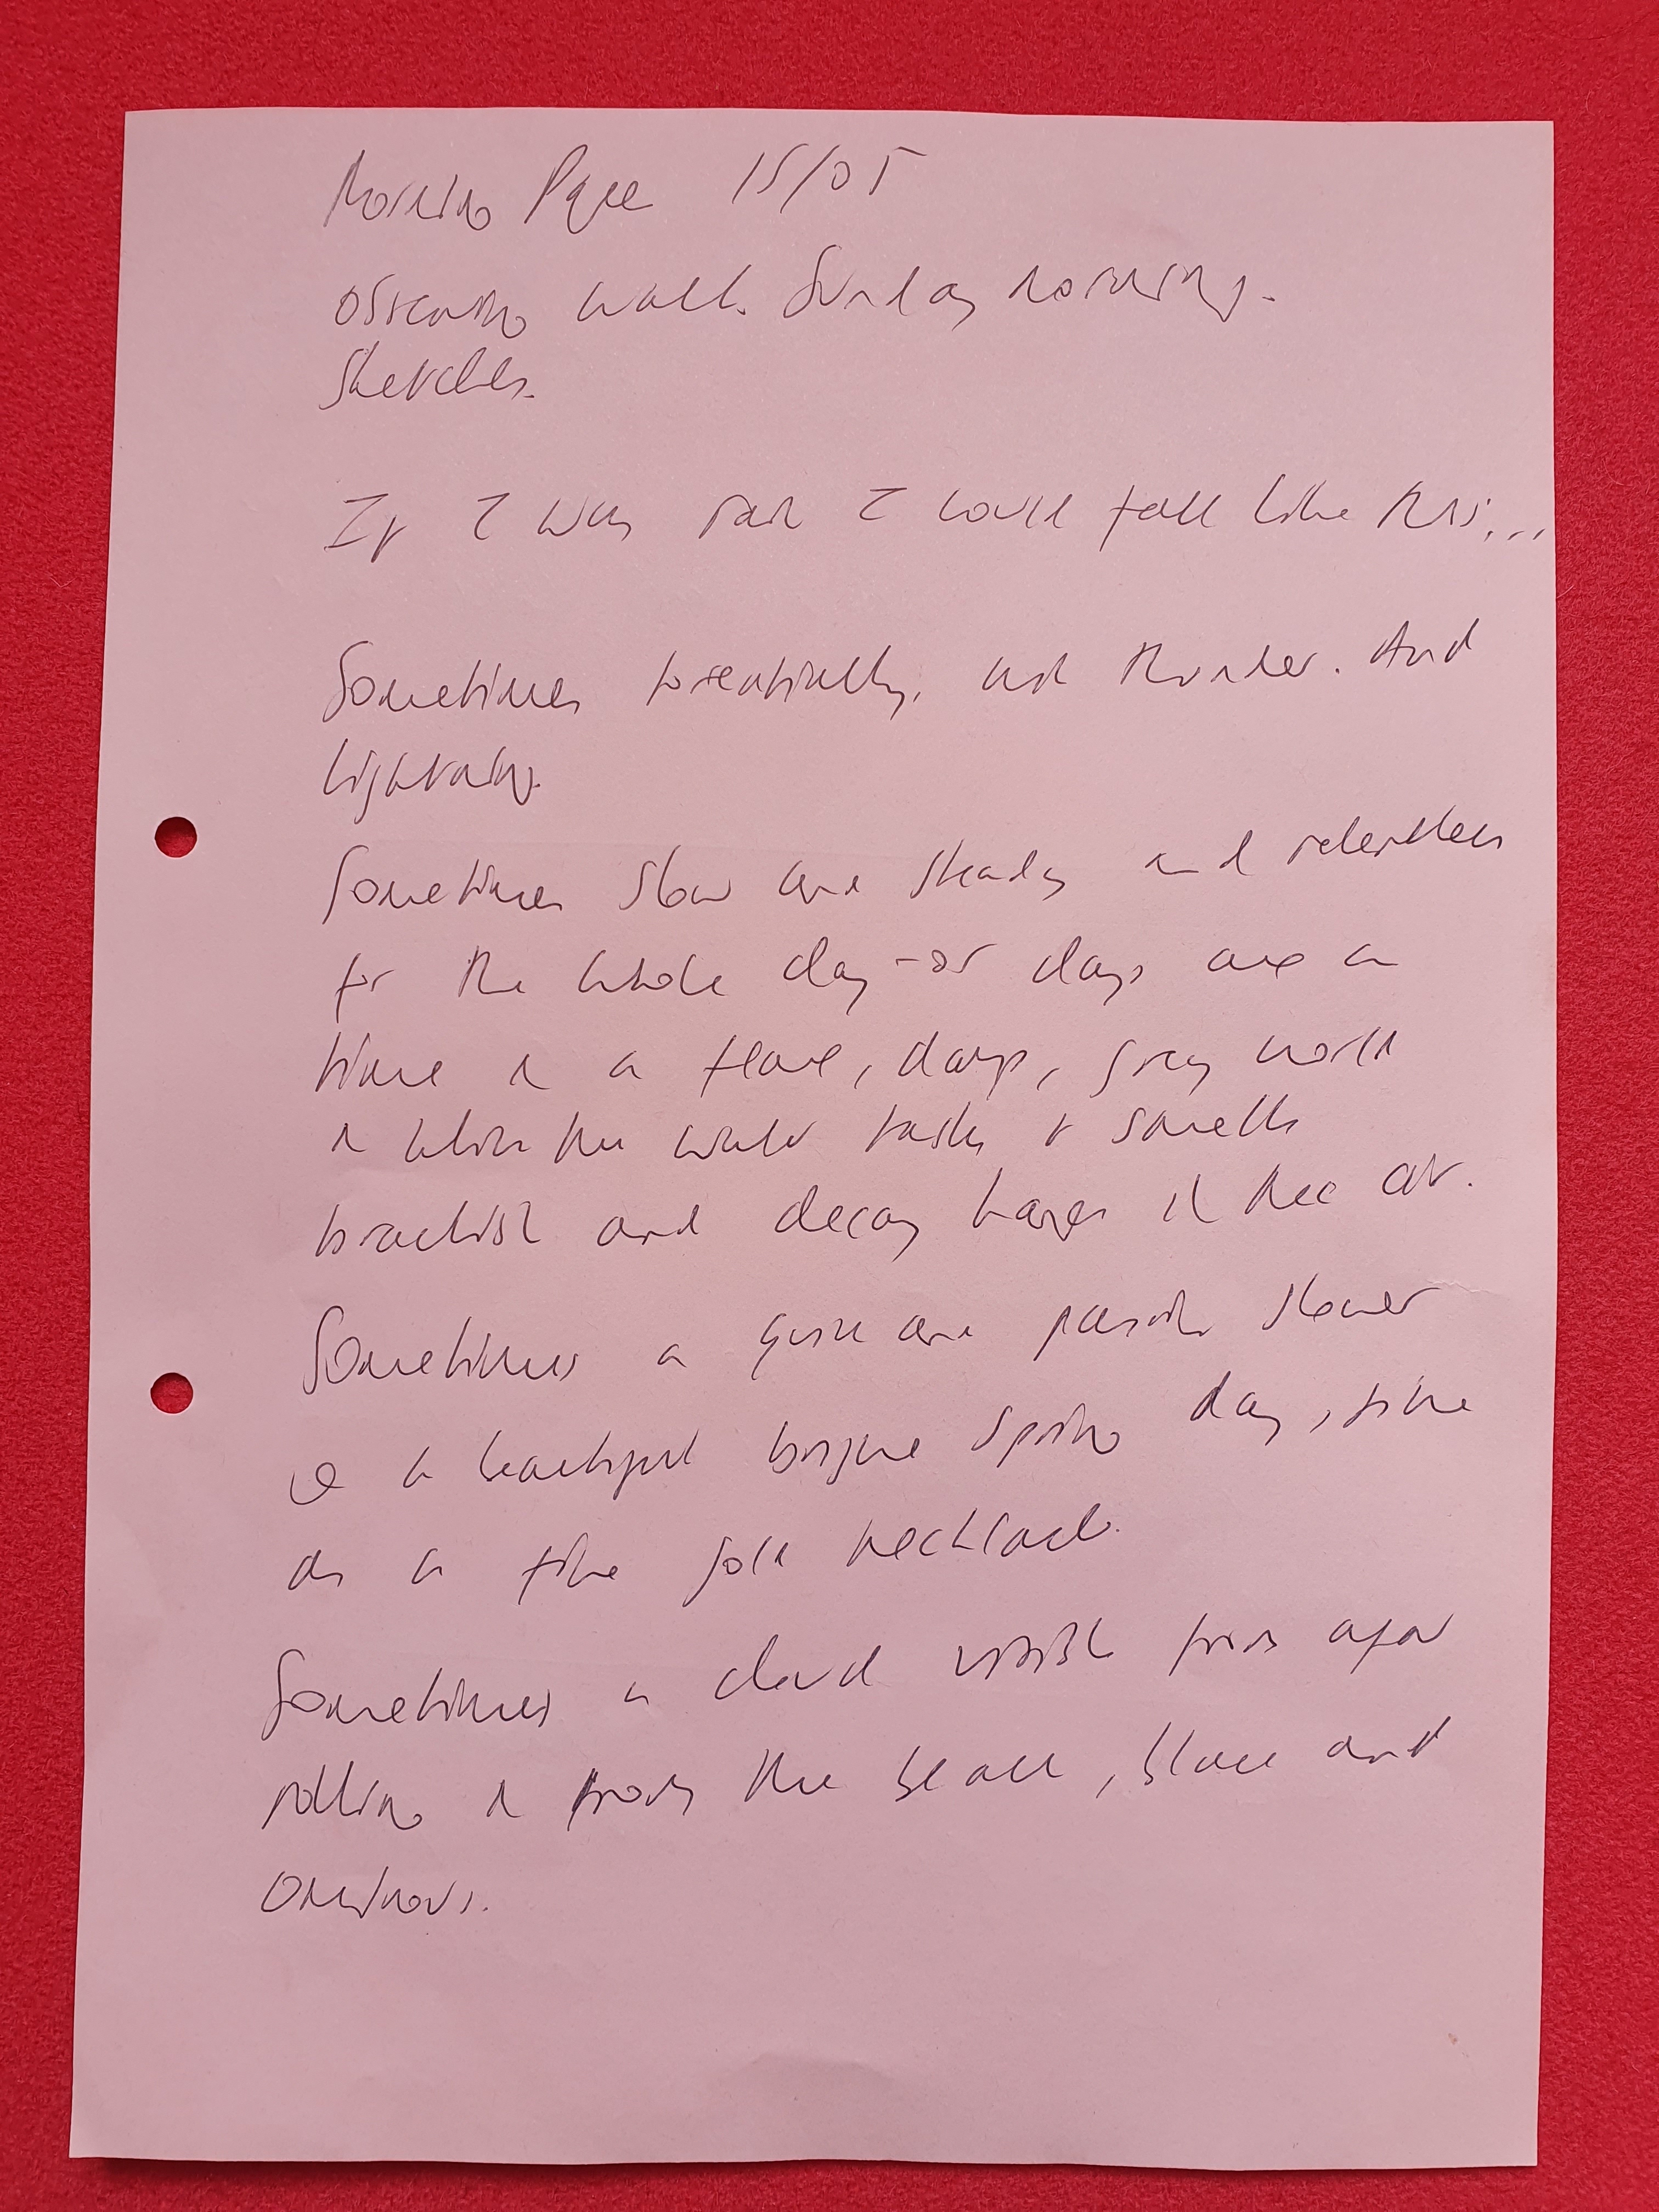 Morning Page 15/05
Observation walk. Sunday morning.
Sketches.
If I was rain I would fall like this...
Sometimes torrentially, with thunder. And
lightning.
Sometimes slow and steady and relentless
for the whole day - or days at a
time in a damp, grey world
in which the water tastes & smells
brackish and decay hangs in the air.
Sometimes a quick and passing shower
on a beautiful bright Spring day, fine
as a fine gold necklace.
Sometimes a cloud visible from afar
rolling in from the , black and
ominous.